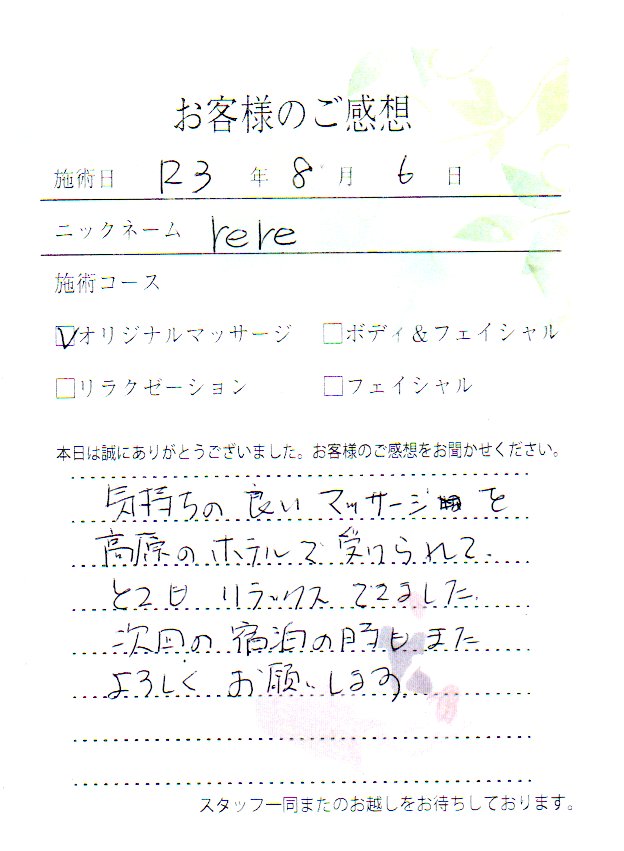 お客様のご感想
施術日 R3 年 8 月 6 日
ニックネーム rere
施術コース
☑オリジナルマッサージ □ボディ＆フェイシャル
□リラクゼーション □フェイシャル
本日は誠にありがとうございました。お客様のご感想をお聞かせください。
気持ちの良いマッサージを
高原のホテルで受けられて、
とてもリラックスできました。
次回の宿泊の時もまた
よろしくお願いします。
スタッフ一同またのお越しをお待ちしております。